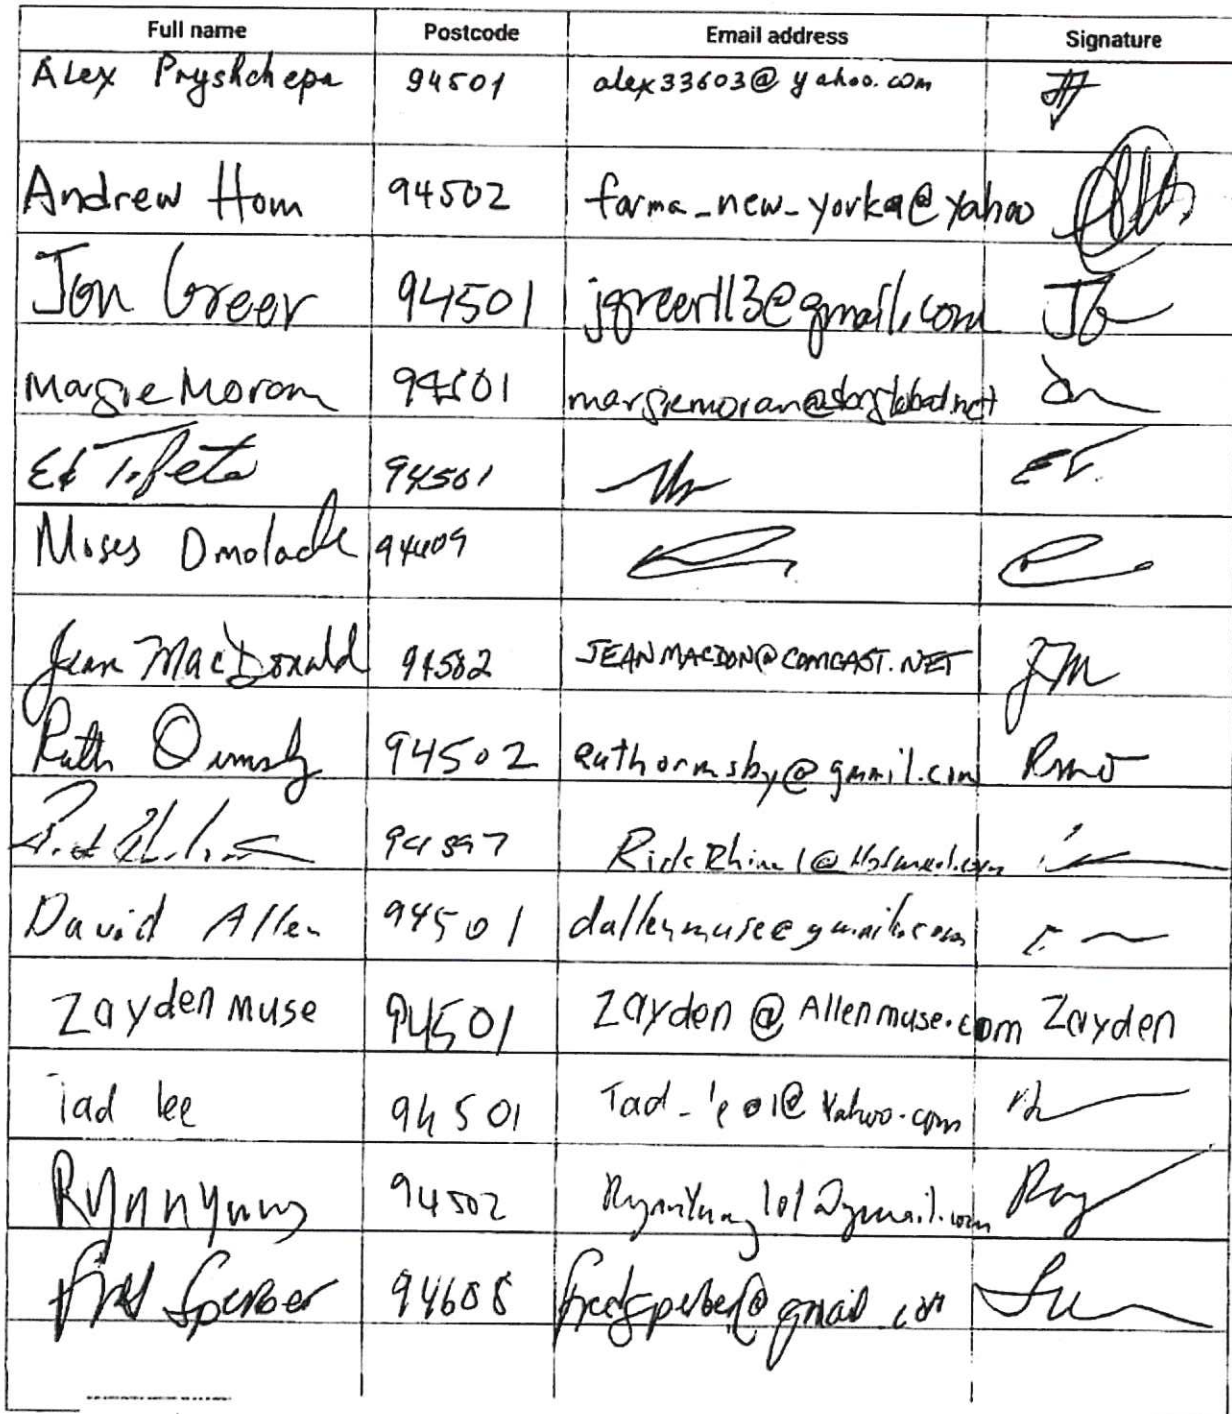 Full name Postcode Email address Signature
Alex Pryshchepa 94501 alex33603@yahoo.com
Andrew Hom 94502 farma_new_yorka@yahoo
Jon Greer 94501 jgreer113@gmail.com JG
Margie Moran 94501 margiemoran@sbcglobal.net
Ed 94501 ET.
Moses Omolade 94609
Jean MacDonald 94502 JEANMACDON@COMCAST.NET JM
Ruth Ormsby 94502 ruthormsby@gmail.com RMO
94597
David Allen 94501 dallenmuse@gmail.com
Zayden muse 94501 Zayden@Allenmuse.com Zayden
Tad lee 94501
Rynn Yung 94502 Ray
fred Sperber 94608 fredsperber@gmail.com